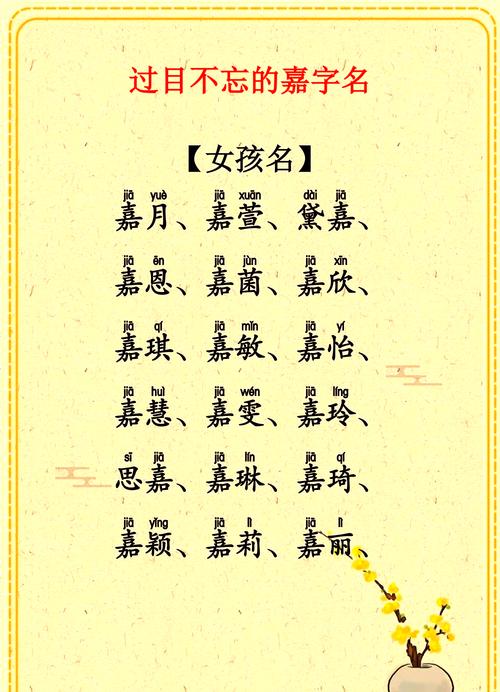 过目不忘的嘉字名
【女孩名】
jiā yuè jiā xuān dài jiā
嘉月、嘉萱、黛嘉、
jiā ēn jiā jùn jiā xīn
嘉恩、嘉菌、嘉欣、
jiā qí jiā mǐn jiā yí
嘉琪、嘉敏、嘉怡、
jiā huì jiā wén jiā líng
嘉慧、嘉雯、嘉玲、
sī jiā jiā lín jiā qí
思嘉、嘉琳、嘉琦、
jiā yǐng jiā lì jiā lì
嘉颖、嘉莉、嘉丽、